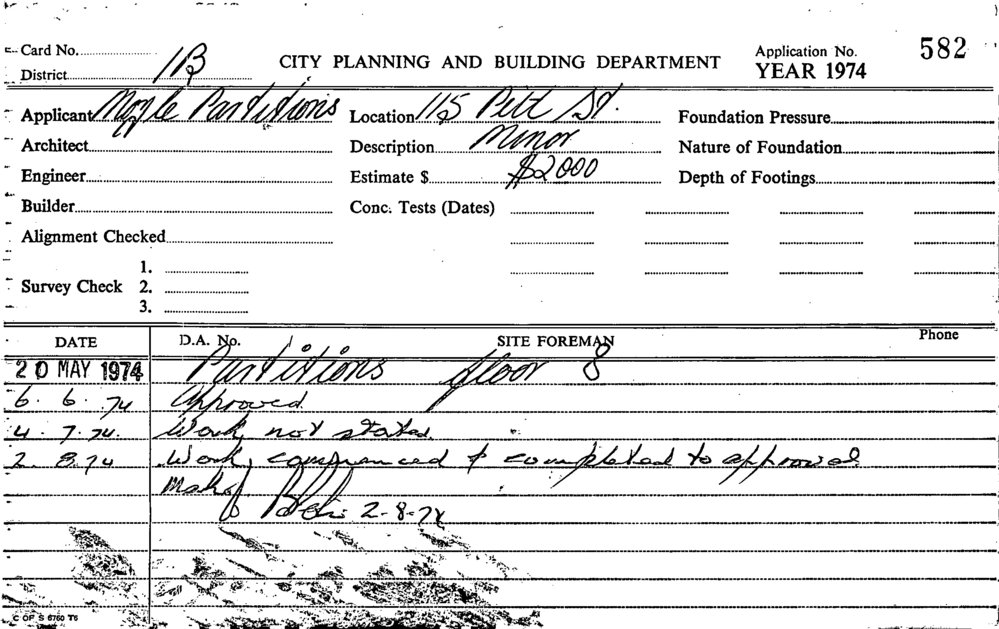 Card No.
District 1B
CITY PLANNING AND BUILDING DEPARTMENT
Application No. 582
YEAR 1974
Applicant Moyle Partitions
Location 115 Pitt St.
Foundation Pressure
Architect
Description Minor
Nature of Foundation
Engineer
Estimate $ $2000
Depth of Footings
Builder
Conc. Tests (Dates)
Alignment Checked
1.
Survey Check 2.
3.
DATE D.A. No. SITE FOREMAN Phone
20 MAY 1974 Partitions floor 8
6. 6. 74 Approved
4. 7. 74. Work not started
2. 8. 74 Work commenced & completed to approval
2-8-74
C OF S 6760 T6